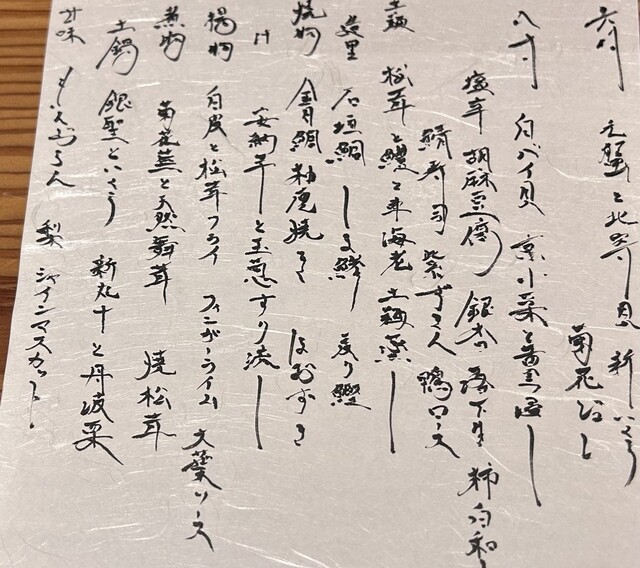 先付 毛蟹と北寄貝 新いくら
菊花浸し
八寸 白バイ貝 京水菜と菊菜浸し
塩辛 胡麻豆腐 銀杏 落下生 柿白和
鯖寿司 紫ずきん 鴨ロース
土瓶 松茸と鱧と車海老 土瓶蒸し
造里 石垣鯛 しま鯵 戻り鰹
焼物 金目鯛 柚庵焼き ほおずき
汁 安納芋と玉葱すり流し
揚物 白皮と松茸フライ フィンガーライム 大葉ソース
煮物 菊花蕪と天然舞茸 焼松茸
土鍋 銀聖といくら 新丸十と丹波栗
甘味 もへぷりん 梨 シャインマスカット